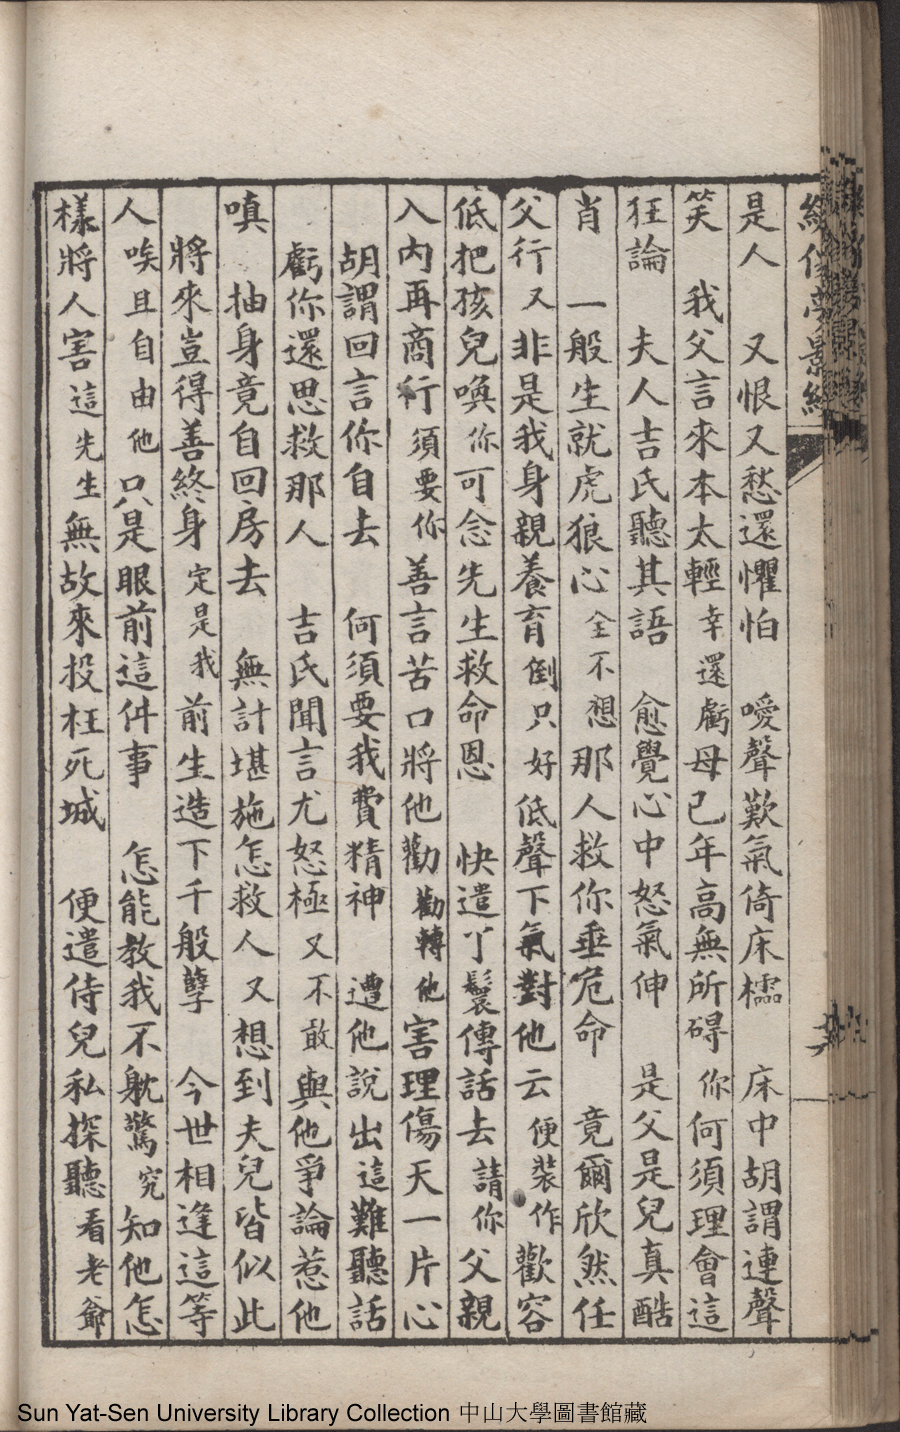 是人　又恨又愁還懼怕　噯聲歎氣倚床檽　床中胡謂連聲
笑　我父言來本太輕幸還虧母已年高無所碍你何須理會這
狂論　夫人吉氏聽其語　愈覺心中怒氣伸　是父是兒真酷
肖　一般生就虎狼心全不想那人救你垂危命　竟爾欣然任
父行又非是我身親養育倒只好低聲下氣對他云便裝作歡容
低把孩兒喚你可念先生救命恩　快遣丫鬟傳話去請你父親
入內再商行須要你善言苦口將他勸勸轉他害理傷天一片心
胡謂回言你自去　何須要我費精神　遭他說出這難聽話
虧你還思救那人　吉氏聞言尤怒極又不敢與他爭論惹他
嗔　抽身竟自回房去　無計堪施怎救人又想到夫兒皆似此
將來豈得善終身定是我前生造下千般孽　今世相逢這等
人唉且自由他只是眼前這件事　怎能教我不躭驚究知他怎
樣將人害這先生無故來投枉死城　便遣侍兒私探聽看老爺
Sun Yat-Sen University Library Collection 中山大學圖書館藏